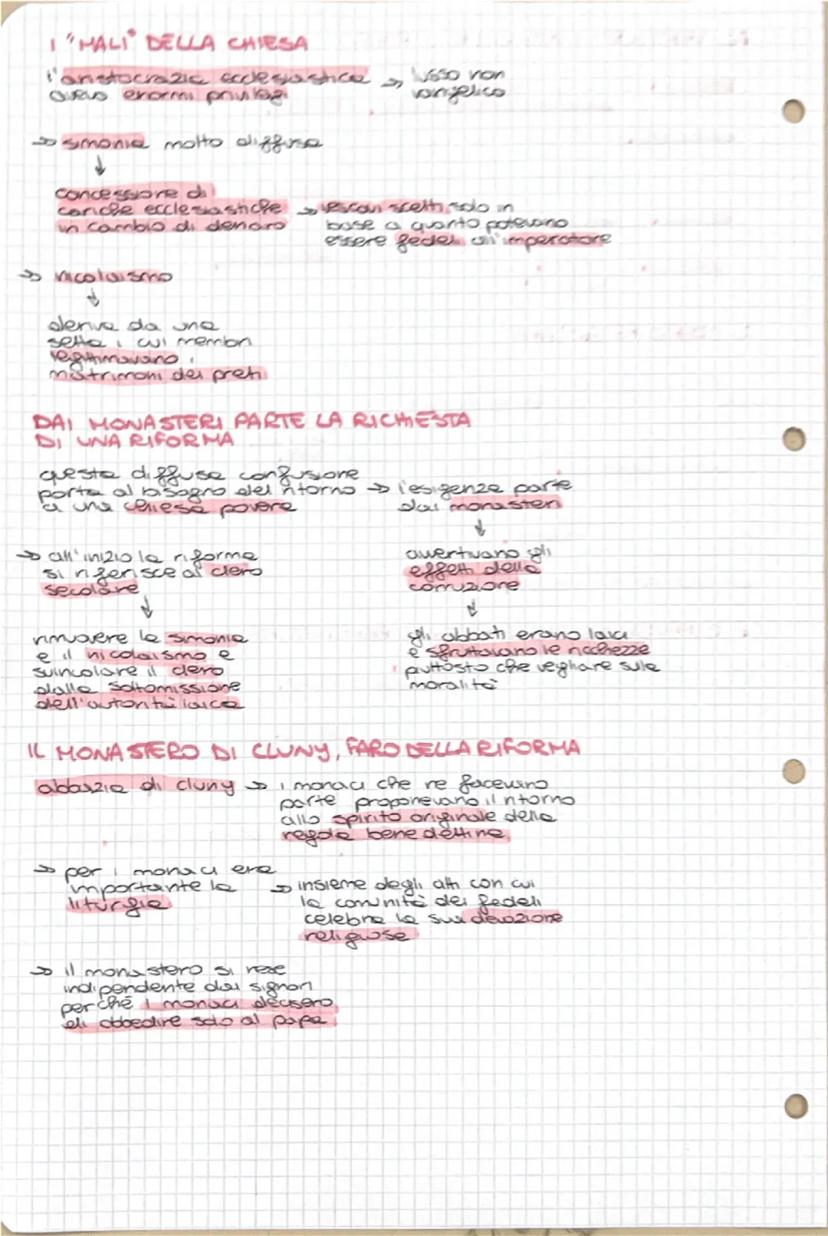 I "MALI" DELLA CHIESA
l'aristocrazia ecclesiastica → lusso non
aveva enormi privilegi vangelico
→ simonia molto diffusa
↓
concessione di
cariche ecclesiastiche → vescovi scelti solo in
in cambio di denaro base a quanto potevano
essere fedeli all'imperatore
→ nicolaismo
↓
deriva da una
setta i cui membri
legittimavano i
matrimoni dei preti
DAI MONASTERI PARTE LA RICHIESTA
DI UNA RIFORMA
questa diffusa confusione
porta al bisogno del ritorno → l'esigenza parte
a una chiesa povera dai monasteri
↓
→ all'inizio la riforma avvertivano gli
si riferisce al clero effetti della
secolare corruzione
↓ ↓
rimuovere la simonia gli abbati erano laici
e il nicolaismo e e sfruttavano le ricchezze
svincolare il clero piuttosto che vegliare sulla
dalla sottomissione moralità
dell'autorità laica
IL MONASTERO DI CLUNY, FARO DELLA RIFORMA
abbazia di cluny → i monaci che ne facevano
parte proponevano il ritorno
allo spirito originale della
regola benedettina
→ per i monaci era
importante la → insieme degli atti con cui
liturgia la comunità dei fedeli
celebra la sua devozione
religiosa
→ il monastero si rese
indipendente dai signori
perché i monaci decisero
di obbedire solo al papa